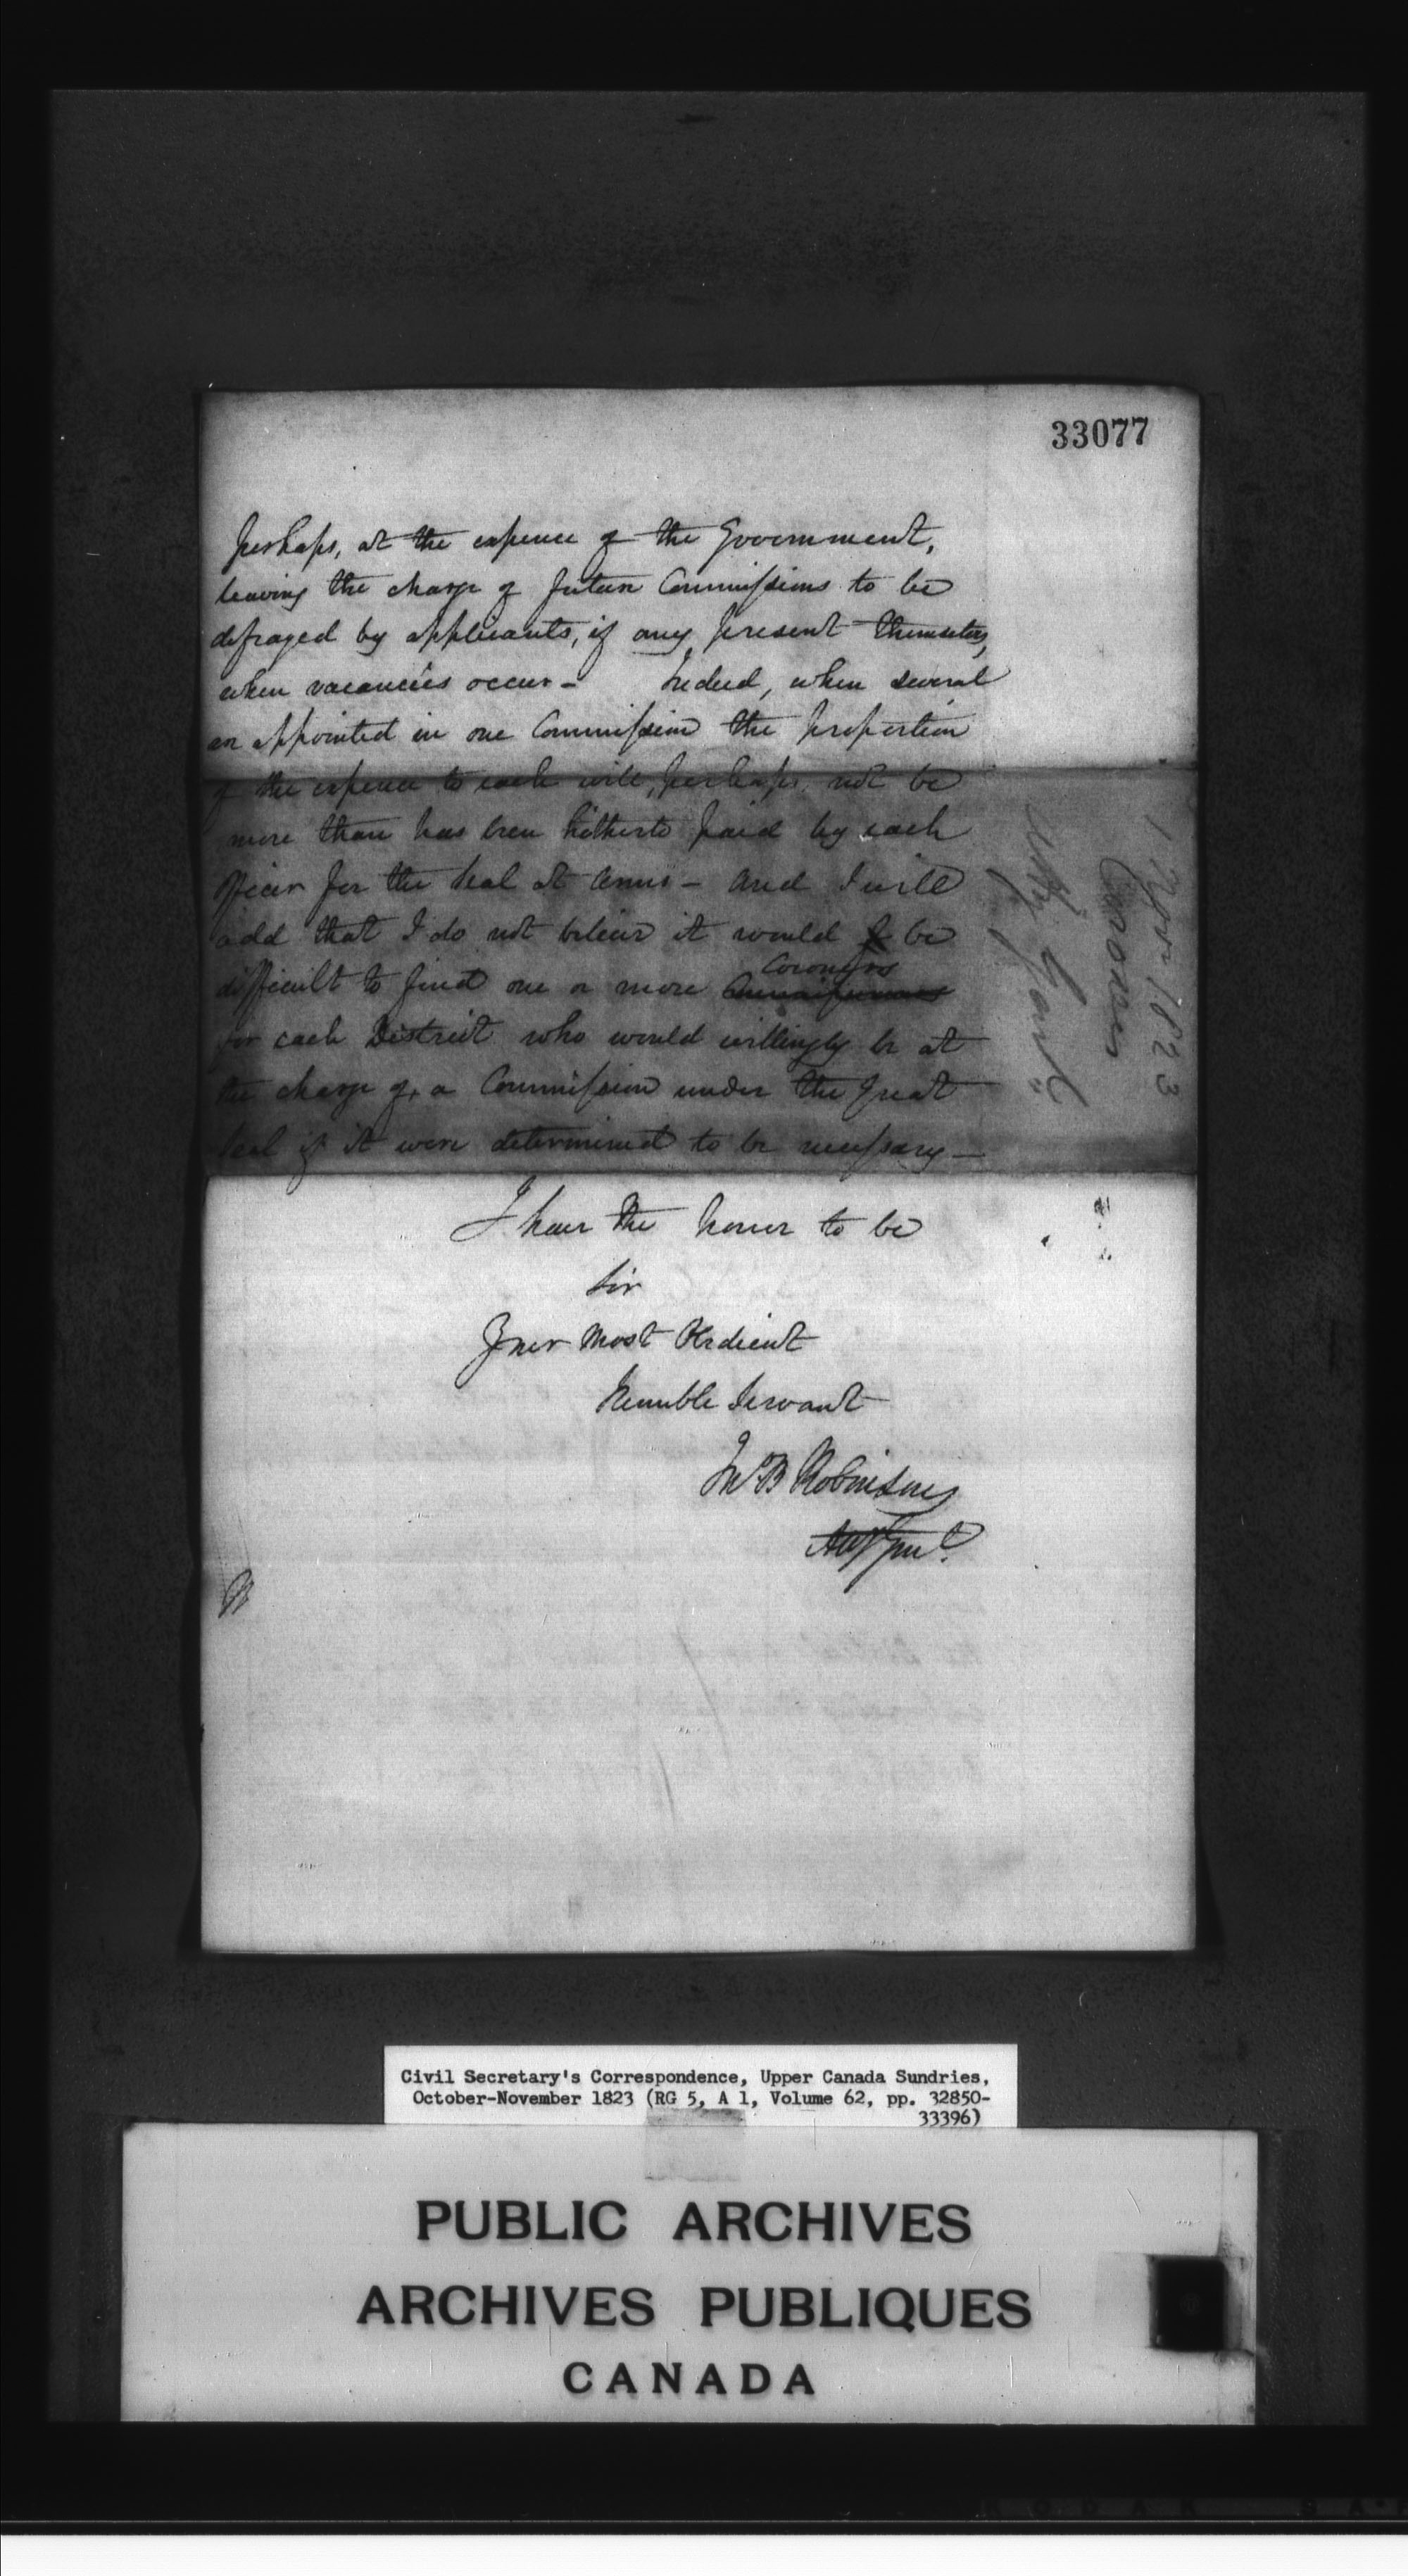 33077
perhaps, at the expence of the Government,
leaving the charge of future Commissions to be
defrayed by applicants, if any present themselves,
when vacancies occur - Indeed, when several
are appointed in one Commission the proportion
of the expence to each will, perhaps, not be
more than has been hitherto paid by each
officer for the Seal at Arms - And I will
add that I do not believe it would be
Coroners
difficult to find one or more
for each District who would willingly be at
the charge of a Commission under the Great
Seal if it were determined to be necessary -
I have the honor to be
Sir
Your Most Obedient
Humble Servant
Jno B Robinson
Atty Genl.
Atty Genl
Coroners
1 Novr 1823
Civil Secretary's Correspondence, Upper Canada Sundries,
October-November 1823 (RG 5, A 1, Volume 62, pp. 32850-
33396)
PUBLIC ARCHIVES
ARCHIVES PUBLIQUES
CANADA